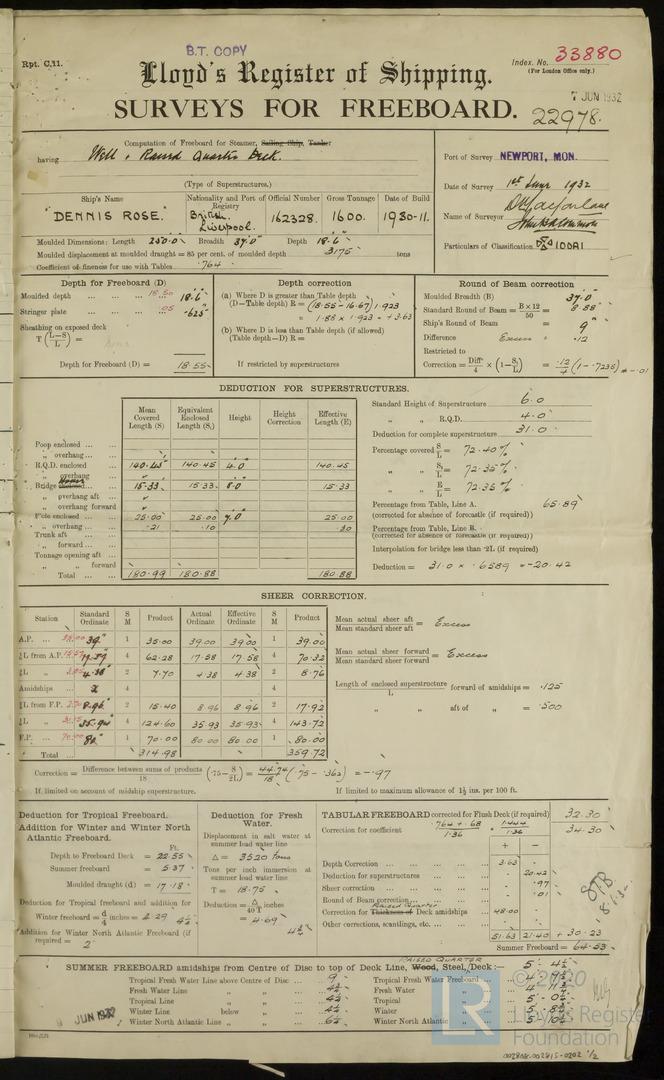 B.T. COPY
Rpt. C.11.
Index. No. 33880
(For London Office only.)
Lloyd's Register of Shipping.
7 JUN 1932
SURVEYS FOR FREEBOARD.
22978.
Computation of Freeboard for Steamer, Sailing Ship, Tanker
having Well & Raised Quarter Deck.
(Type of Superstructures.)
Port of Survey NEWPORT, MON.
Date of Survey 1st June 1932
Name of Surveyor
Particulars of Classification 100A1
Ship's Name Nationality and Port of Registry Official Number Gross Tonnage Date of Build
"DENNIS ROSE." British Liverpool. 162328. 1600. 1930-11.
Moulded Dimensions: Length 250.0 Breadth 37.0 Depth 18.6
Moulded displacement at moulded draught = 85 per cent. of moulded depth 3175 tons
Coefficient of fineness for use with Tables .764
Depth for Freeboard (D)
Moulded depth ... 18.50 18.6
Stringer plate ... .05 .625
Sheathing on exposed deck
T (L-S/L) =
Depth for Freeboard (D) = 18.55
Depth correction
(a) Where D is greater than Table depth
(D-Table depth) R = (18.55 - 16.67) 1.923
= 1.88 x 1.923 = +3.63
(b) Where D is less than Table depth (if allowed)
(Table depth-D) R =
If restricted by superstructures
Round of Beam correction
Moulded Breadth (B) 37.0
Standard Round of Beam = B x 12 / 50 = 8.88
Ship's Round of Beam = 9
Difference Excess .12
Restricted to
Correction = Diff/4 x (1 - S₁/L) = .12/4 (1 - .7235) = -.01
DEDUCTION FOR SUPERSTRUCTURES.
Mean Covered Length (S) Equivalent Enclosed Length (S₁) Height Height Correction Effective Length (E)
Poop enclosed ...
" overhang ...
R.Q.D. enclosed 140.45 140.45 4.0 140.45
" overhang
Bridge House 15.33 15.33 8.0 15.33
" overhang aft
" overhang forward
F'cle enclosed ... 25.00 25.00 7.0 25.00
" overhang ... .21 .10
Trunk aft ...
" forward ...
Tonnage opening aft ...
" " forward
Total ... 180.99 180.88 180.88
Standard Height of Superstructure 6.0
" " R.Q.D. 4.0
Deduction for complete superstructure 31.0
Percentage covered S/L = 72.40%
" " S₁/L = 72.35%
" " E/L = 72.35%
Percentage from Table, Line A. 65.89
(corrected for absence of forecastle (if required))
Percentage from Table, Line B.
(corrected for absence of forecastle (if required))
Interpolation for bridge less than .2L (if required)
Deduction = 31.0 x .6589 = -20.42
SHEER CORRECTION.
Station Standard Ordinate S M Product Actual Ordinate Effective Ordinate S M Product
A.P. ... 35.00 39" 1 35.00 39.00 39.00 1 39.00
¼L from A.P. 15.57 17.57 4 62.28 17.58 17.58 4 70.32
¼L " 3.85 4.38 2 7.70 4.38 4.38 2 8.76
Amidships ... 4 4
¼L from F.P. 7.70 8.96 2 15.40 8.96 8.96 2 17.92
¼L " 31.15 35.94 4 124.60 35.93 35.93 4 143.72
F.P. ... 70.00 80" 1 70.00 80.00 80.00 1 80.00
Total ... 314.98 359.72
Mean actual sheer aft / Mean standard sheer aft = Excess
Mean actual sheer forward / Mean standard sheer forward = Excess
Length of enclosed superstructure / L forward of amidships = .125
" " aft of " = .500
Correction = Difference between sums of products / 18 (.75 - S/2L) = 44.74/18 (.75 - .362) = -.97
If limited on account of midship superstructure.
If limited to maximum allowance of 1½ ins. per 100 ft.
Deduction for Tropical Freeboard.
Addition for Winter and Winter North Atlantic Freeboard.
Ft.
Depth to Freeboard Deck = 22.55
Summer freeboard = 5.37
Moulded draught (d) = 17.18
Deduction for Tropical freeboard and addition for
Winter freeboard = d/4 inches = 4.29 4¼
Addition for Winter North Atlantic Freeboard (if required) = 2
Deduction for Fresh Water.
Displacement in salt water at summer load water line
Δ = 3520 tons
Tons per inch immersion at summer load water line
T = 18.75
Deduction = Δ/40T inches
= 4.69
4¾
TABULAR FREEBOARD corrected for Flush Deck (if required) 32.30
Correction for coefficient .764 + .68 / 1.36 = 1.444 / 1.36 34.30
+ -
Depth Correction ... 3.63 -
Deduction for superstructures ... - 20.42
Sheer correction ... - .97
Round of Beam correction ... - .01
Correction for Thickness of Raised Quarter Deck amidships ... 48.00 -
Other corrections, scantlings, etc. ...
51.63 21.40 + 30.23
Summer Freeboard = 64.53
SUMMER FREEBOARD amidships from Centre of Disc to top of Deck Line, Wood, Steel, RAISED QUARTER Deck :- 5' - 4½
Tropical Fresh Water Line above Centre of Disc ... 9 Tropical Fresh Water Freeboard
Fresh Water Line " " ... Fresh Water "
Tropical Line " " ... 4¼ Tropical "
Winter Line below " ... 4¼ Winter "
Winter North Atlantic Line " " ... 6¼ Winter North Atlantic "
JUN 1932
© 2020
LR
Lloyd's Register
Foundation
002808-002815-0202 1/2